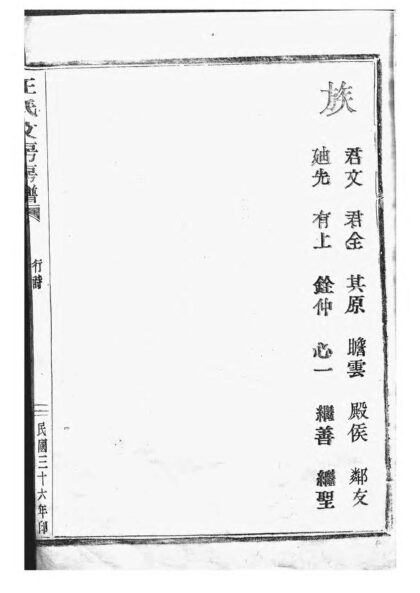 族
君文 君全 其原 瞻雲 殿侯 鄰友
廸先 有上 銓仲 心一 繼善 繼聖
王氏文房房譜
行譜
民國三十六年印